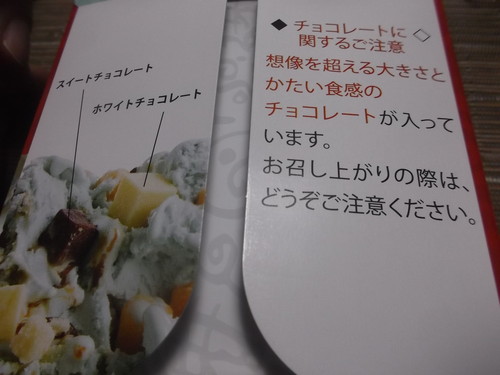 スイートチョコレート
ホワイトチョコレート
◆ チョコレートに ◇
関するご注意
想像を超える大きさと
かたい食感の
チョコレートが入って
います。
お召し上がりの際は、
どうぞご注意ください。